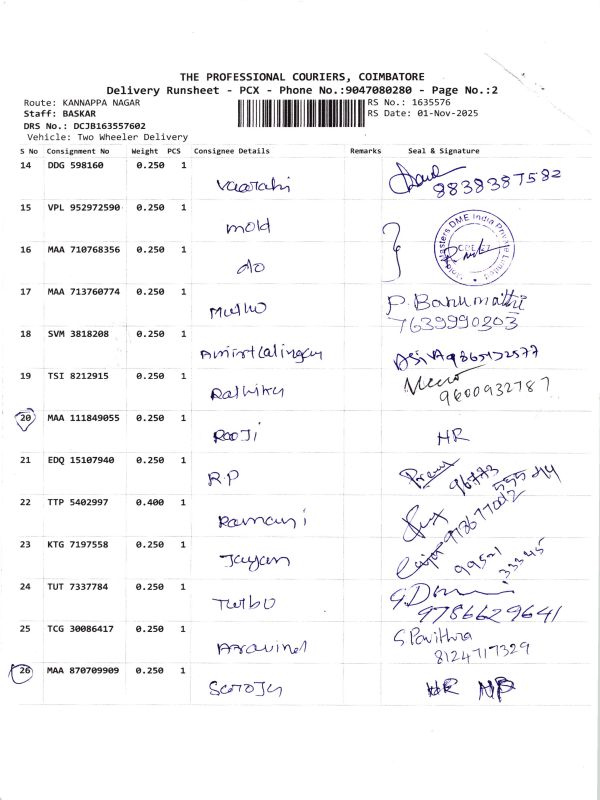 THE PROFESSIONAL COURIERS, COIMBATORE
Delivery Runsheet - PCX - Phone No.:9047080280 - Page No.:2
Route: KANNAPPA NAGAR RS No.: 1635576
Staff: BASKAR RS Date: 01-Nov-2025
DRS No.: DCJB163557602
Vehicle: Two Wheeler Delivery
S No Consignment No Weight PCS Consignee Details Remarks Seal & Signature
14 DDG 598160 0.250 1
Vaarahi 8838387582
15 VPL 952972590 0.250 1
mold
16 MAA 710768356 0.250 1
do
17 MAA 713760774 0.250 1
P. Banumathi
7639990303
18 SVM 3818208 0.250 1
19 TSI 8212915 0.250 1
9600932787
20 MAA 111849055 0.250 1
Rooji HR
21 EDQ 15107940 0.250 1
R.P Prem 96773
22 TTP 5402997 0.400 1
Ramani
23 KTG 7197558 0.250 1
Jayan 99521 33345
24 TUT 7337784 0.250 1
Turbo 9786629641
25 TCG 30086417 0.250 1
Aravind S Pavithra
8124717329
26 MAA 870709909 0.250 1
Saroja HR